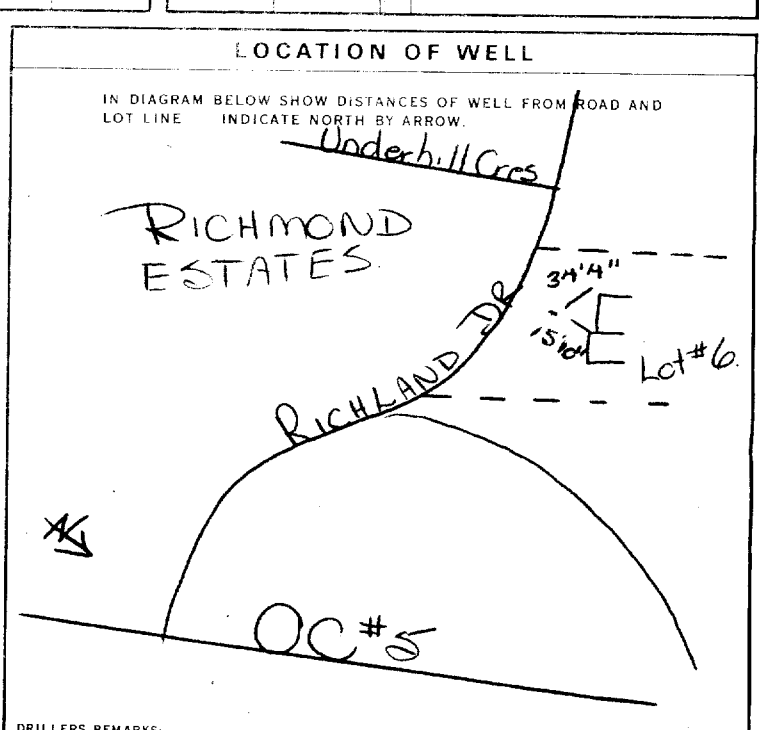 LOCATION OF WELL
IN DIAGRAM BELOW SHOW DISTANCES OF WELL FROM ROAD AND
LOT LINE INDICATE NORTH BY ARROW.
Underhill Cres
RICHMOND
ESTATES.
34'4"
15'10"
Lot #6.
RICHLAND DR
N
OC #5
DRILLERS REMARKS: